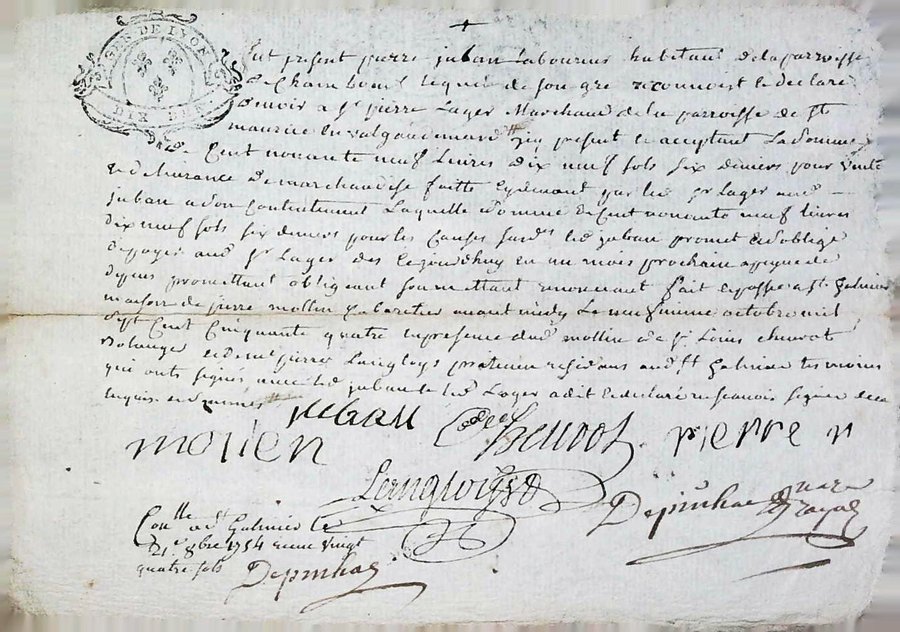 GNER. DE LYON
DIX DEN.
fut present pierre juban Laboureur habitant de la parroisse
de Chambœuf lequel de son gré reconnoit et declare
devoir a Sr pierre Lager Marchand de la parroisse de St
maurice En valgaudemard icy present et acceptant La somme
de Cent nonante neuf Livres dix neuf sols six deniers pour vente
et delivrance de marchandise faitte cydevant par led Sr Lager aud
juban a son Contentement Laquelle somme de Cent nonante neuf livres
dix neuf sols six deniers pour les Causes susds led juban promet et s'oblige
de payer aud Sr Lager des cejourdhuy en un mois prochain a peyne de
depens promettant obligeant soumettant renoncant fait et passé a St Galmier
maison de pierre mollin Cabaretier avant midy Le neufvieme octobre mil
sept Cent Cinquante quatre en presence dud mollin de Sr Louis chuvot
Bolanger et de Me pierre Langloys praticien residans aud St Galmier temoins
qui onts signés avec led juban Led Lager a dit et declaré ne scavoir signer de ce
enquis
juban
molien Chuvot pierre
Langloys
Depinhac
Conlle a St Galmier le
21e 8bre 1754 recu vingt
quatre sols Depinhac